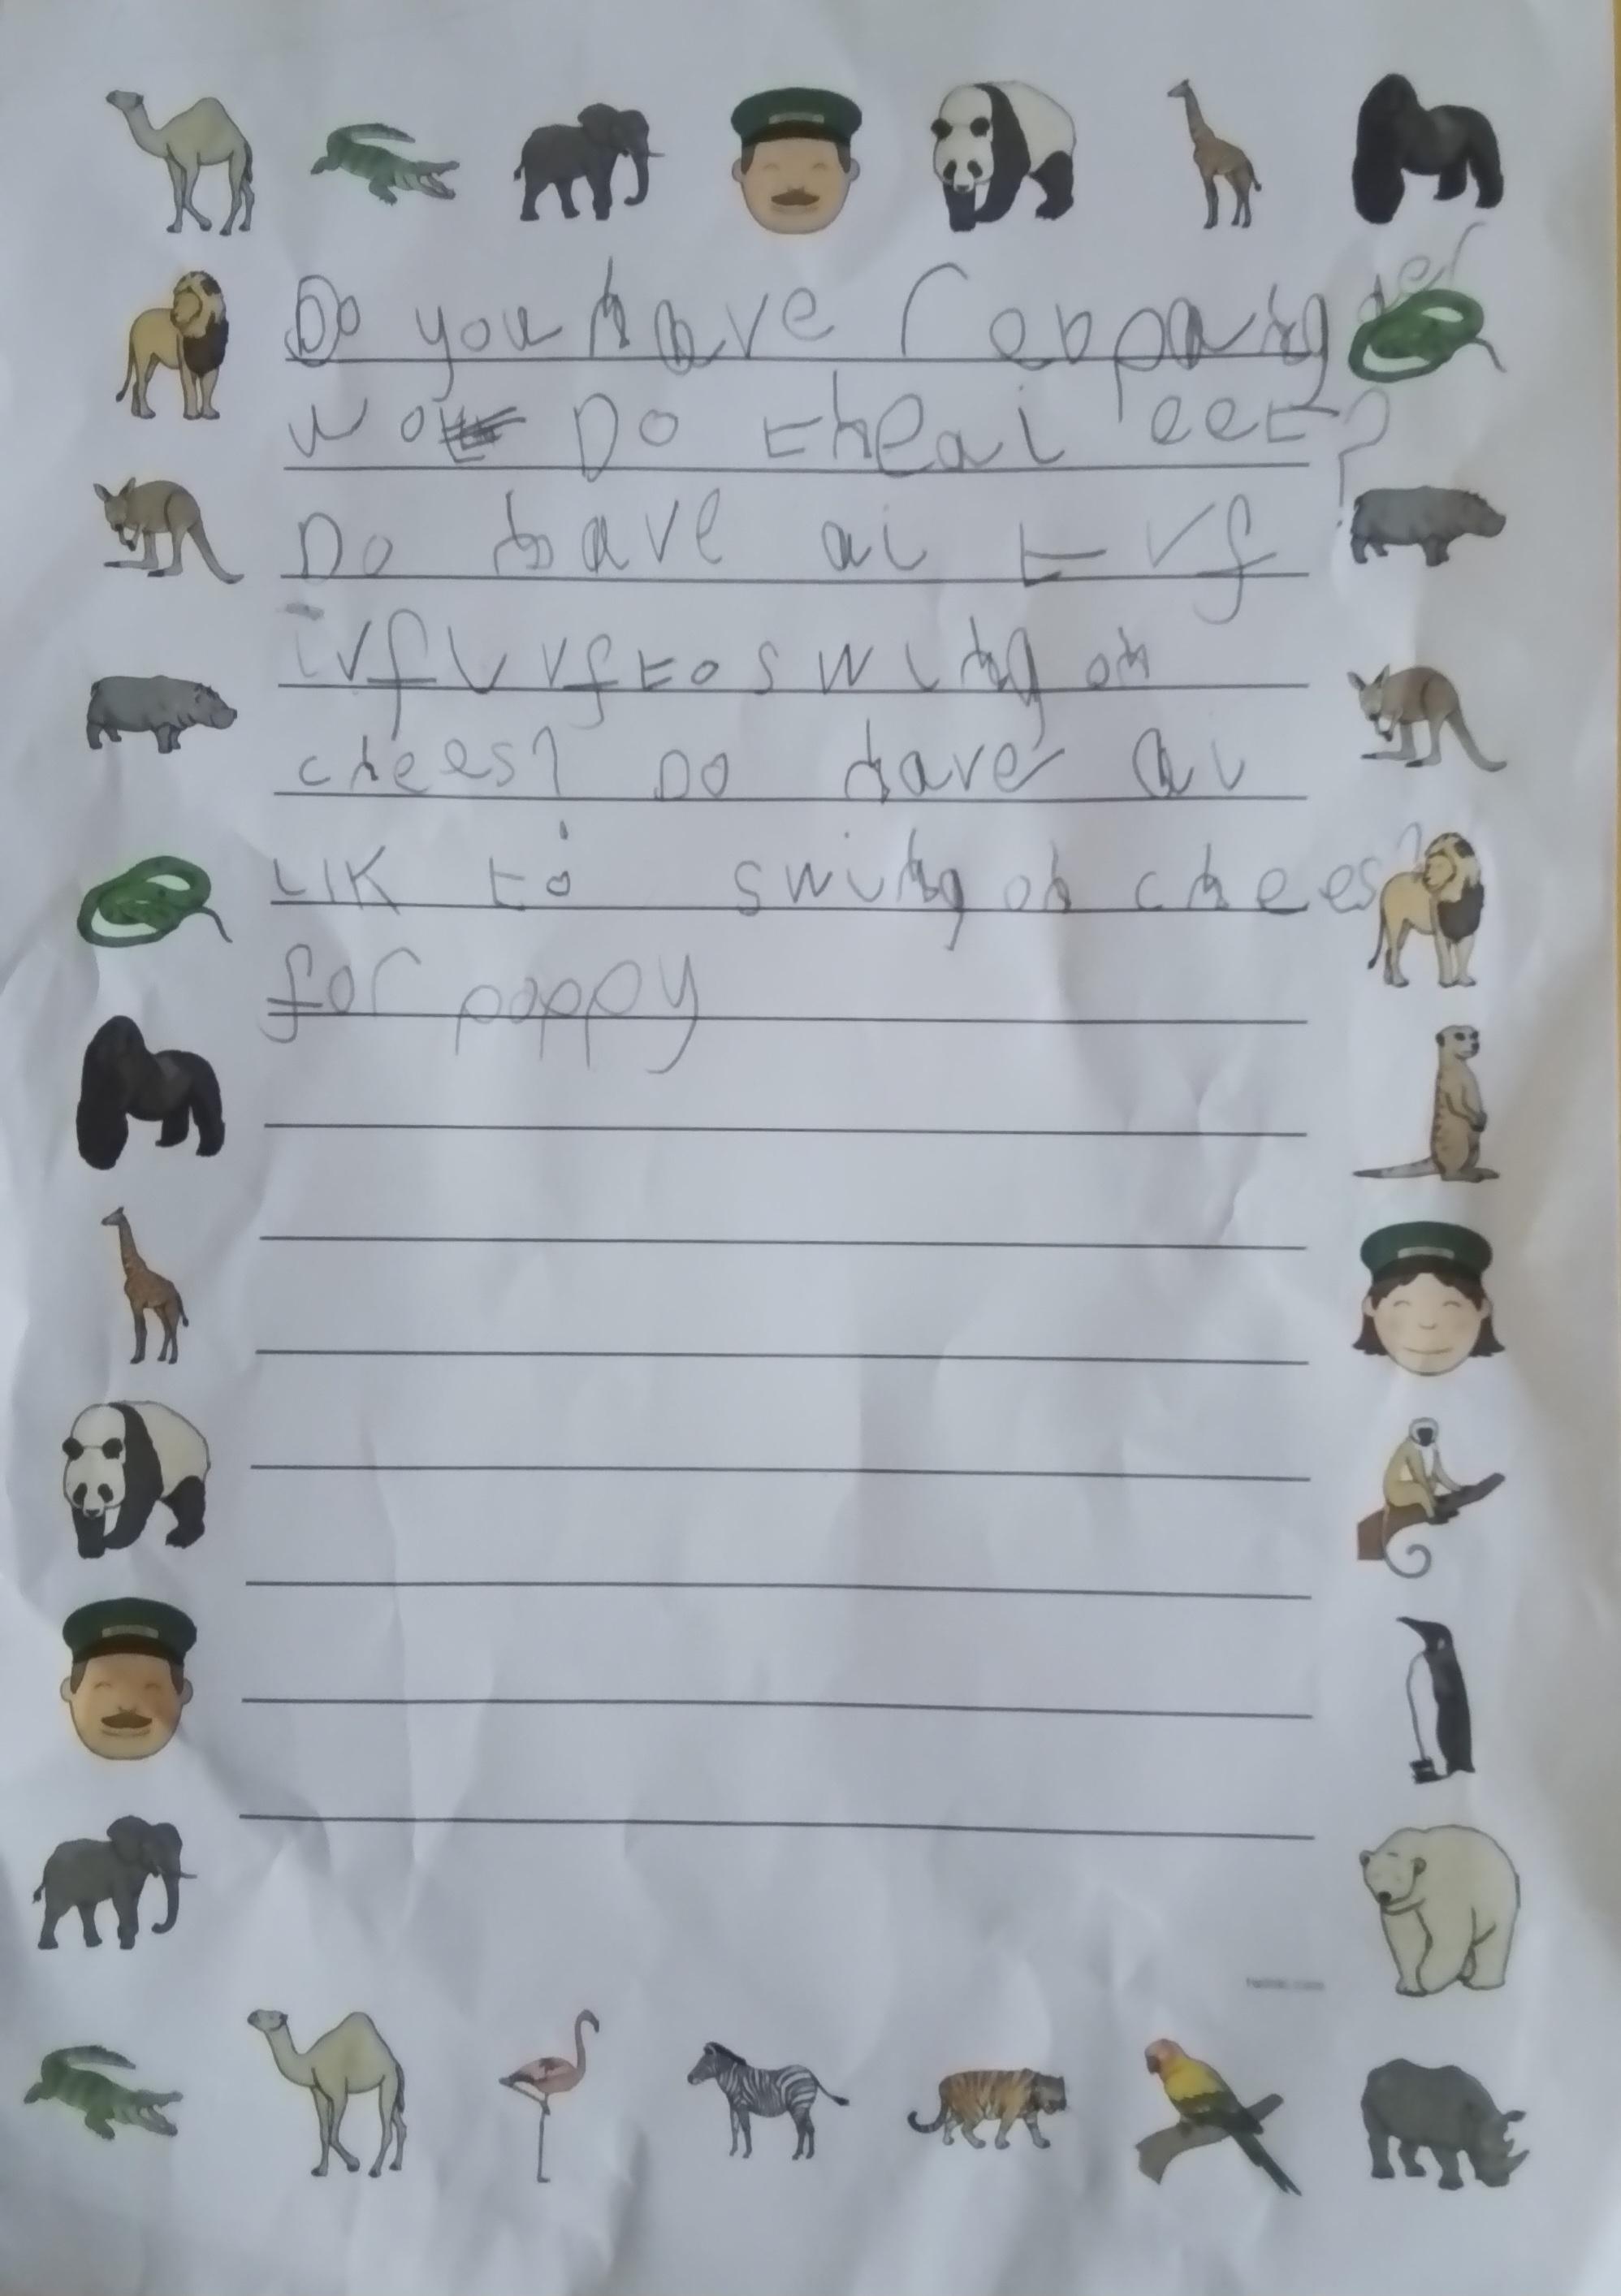 Do you have
wot Do theai eet?
Do have ai
to swing on
chees? Do have ai
LIK to swing on chees?
for poppy